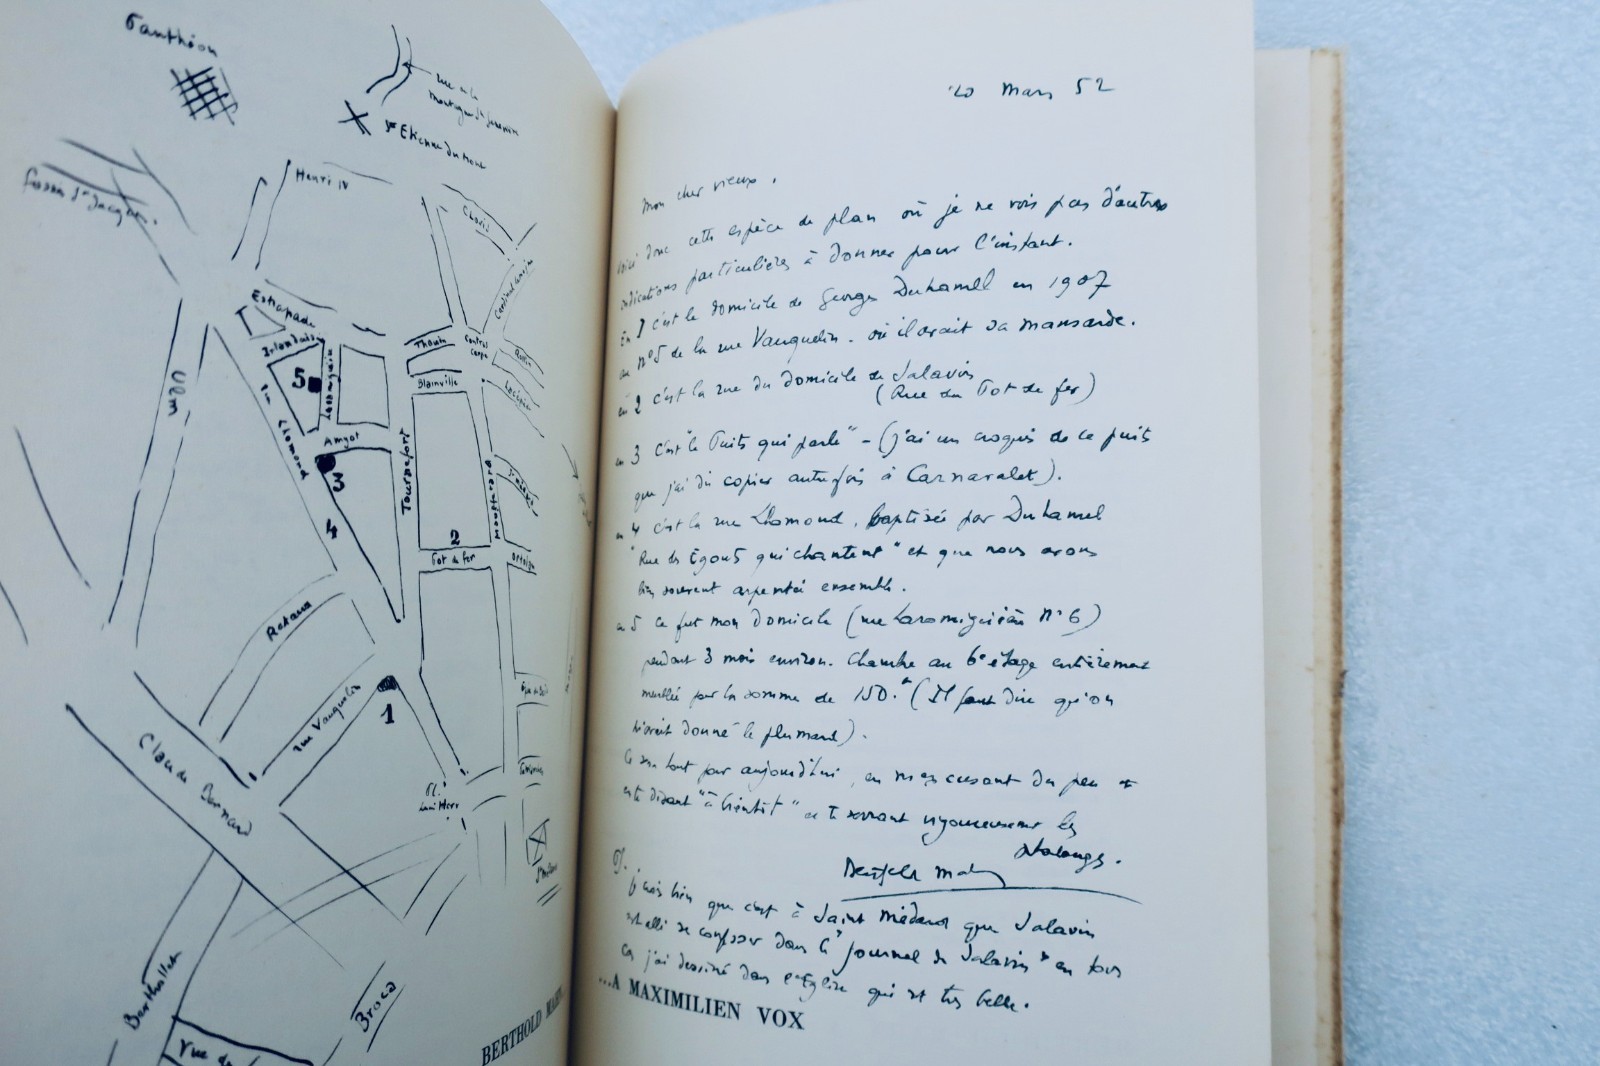 Panthéon
rue de la
Montagne Ste Geneviève
St Etienne du Mont
Fossés St Jacques
Henri IV
Clovis
Cardinal Lemoine
Estrapade
Irlandais
Thouin
Contrescarpe
Rollin
Blainville
Lacépède
Ulm
5
Laromiguière
rue Lhomond
Amyot
3
4
Tournefort
Mouffetard
2
Pot de fer
Ortolan
Rataud
rue Vauquelin
1
Epée de Bois
Claude Bernard
Pl.
Lucien Herr
St Médard
Berthollet
Broca
rue de
BERTHOLD MAHN
20 Mars 52
Mon cher vieux,
Voici donc cette espèce de plan où je ne vois pas d'autres
indications particulières à donner pour l'instant.
En 1 c'est le domicile de Georges Duhamel en 1907
au n°5 de la rue Vauquelin. où il avait sa mansarde.
en 2 c'est la rue du domicile de Salavin
(Rue du Pot de fer)
en 3 c'est "le Puits qui parle" - (j'ai un croquis de ce puits
que j'ai dû copier autrefois à Carnavalet).
en 4 c'est la rue Lhomond, baptisée par Duhamel
"Rue des Egouts qui chantent" et que nous avons
bien souvent arpentée ensemble.
en 5 ce fut mon domicile (rue Laromiguière N°6)
pendant 3 mois environ. Chambre au 6e étage entièrement
meublée par la somme de 150.f (Il faut dire qu'on
m'avait donné le plumard).
Ce sera tout pour aujourd'hui, en m'excusant du peu et
en te disant "à bientôt" et te serrant vigoureusement les
phalanges.
Berthold Mahn
PS.
Je sais bien que c'est à Saint Médard que Salavin
est allé se confesser dans le "Journal de Salavin" en tous
cas j'ai dessiné dans l'Eglise qui est très belle.
...A MAXIMILIEN VOX